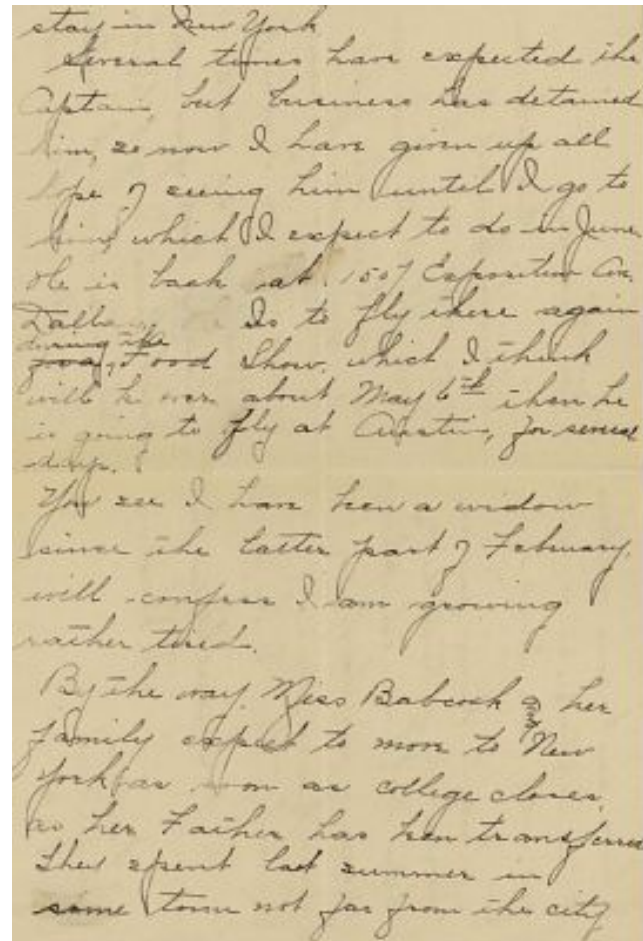 stay in New York
Several times have expected the
Captain, but business has detained
him, so now I have given up all
hope of seeing him until I go to
him, which I expect to do in June
He is back at 1507 Exposition Ave.
Dallas Is to fly there again
during the
Food Show, which I think
will be over about May 6th then he
is going to fly at Austin, for several
days.
You see I have been a widow
since the latter part of February,
will confess I am growing
rather tired.
By the way, Miss Babcock and her
family expect to move to New
York as soon as college closes,
as her Father has been transferred
They spent last summer in
some town not far from the city